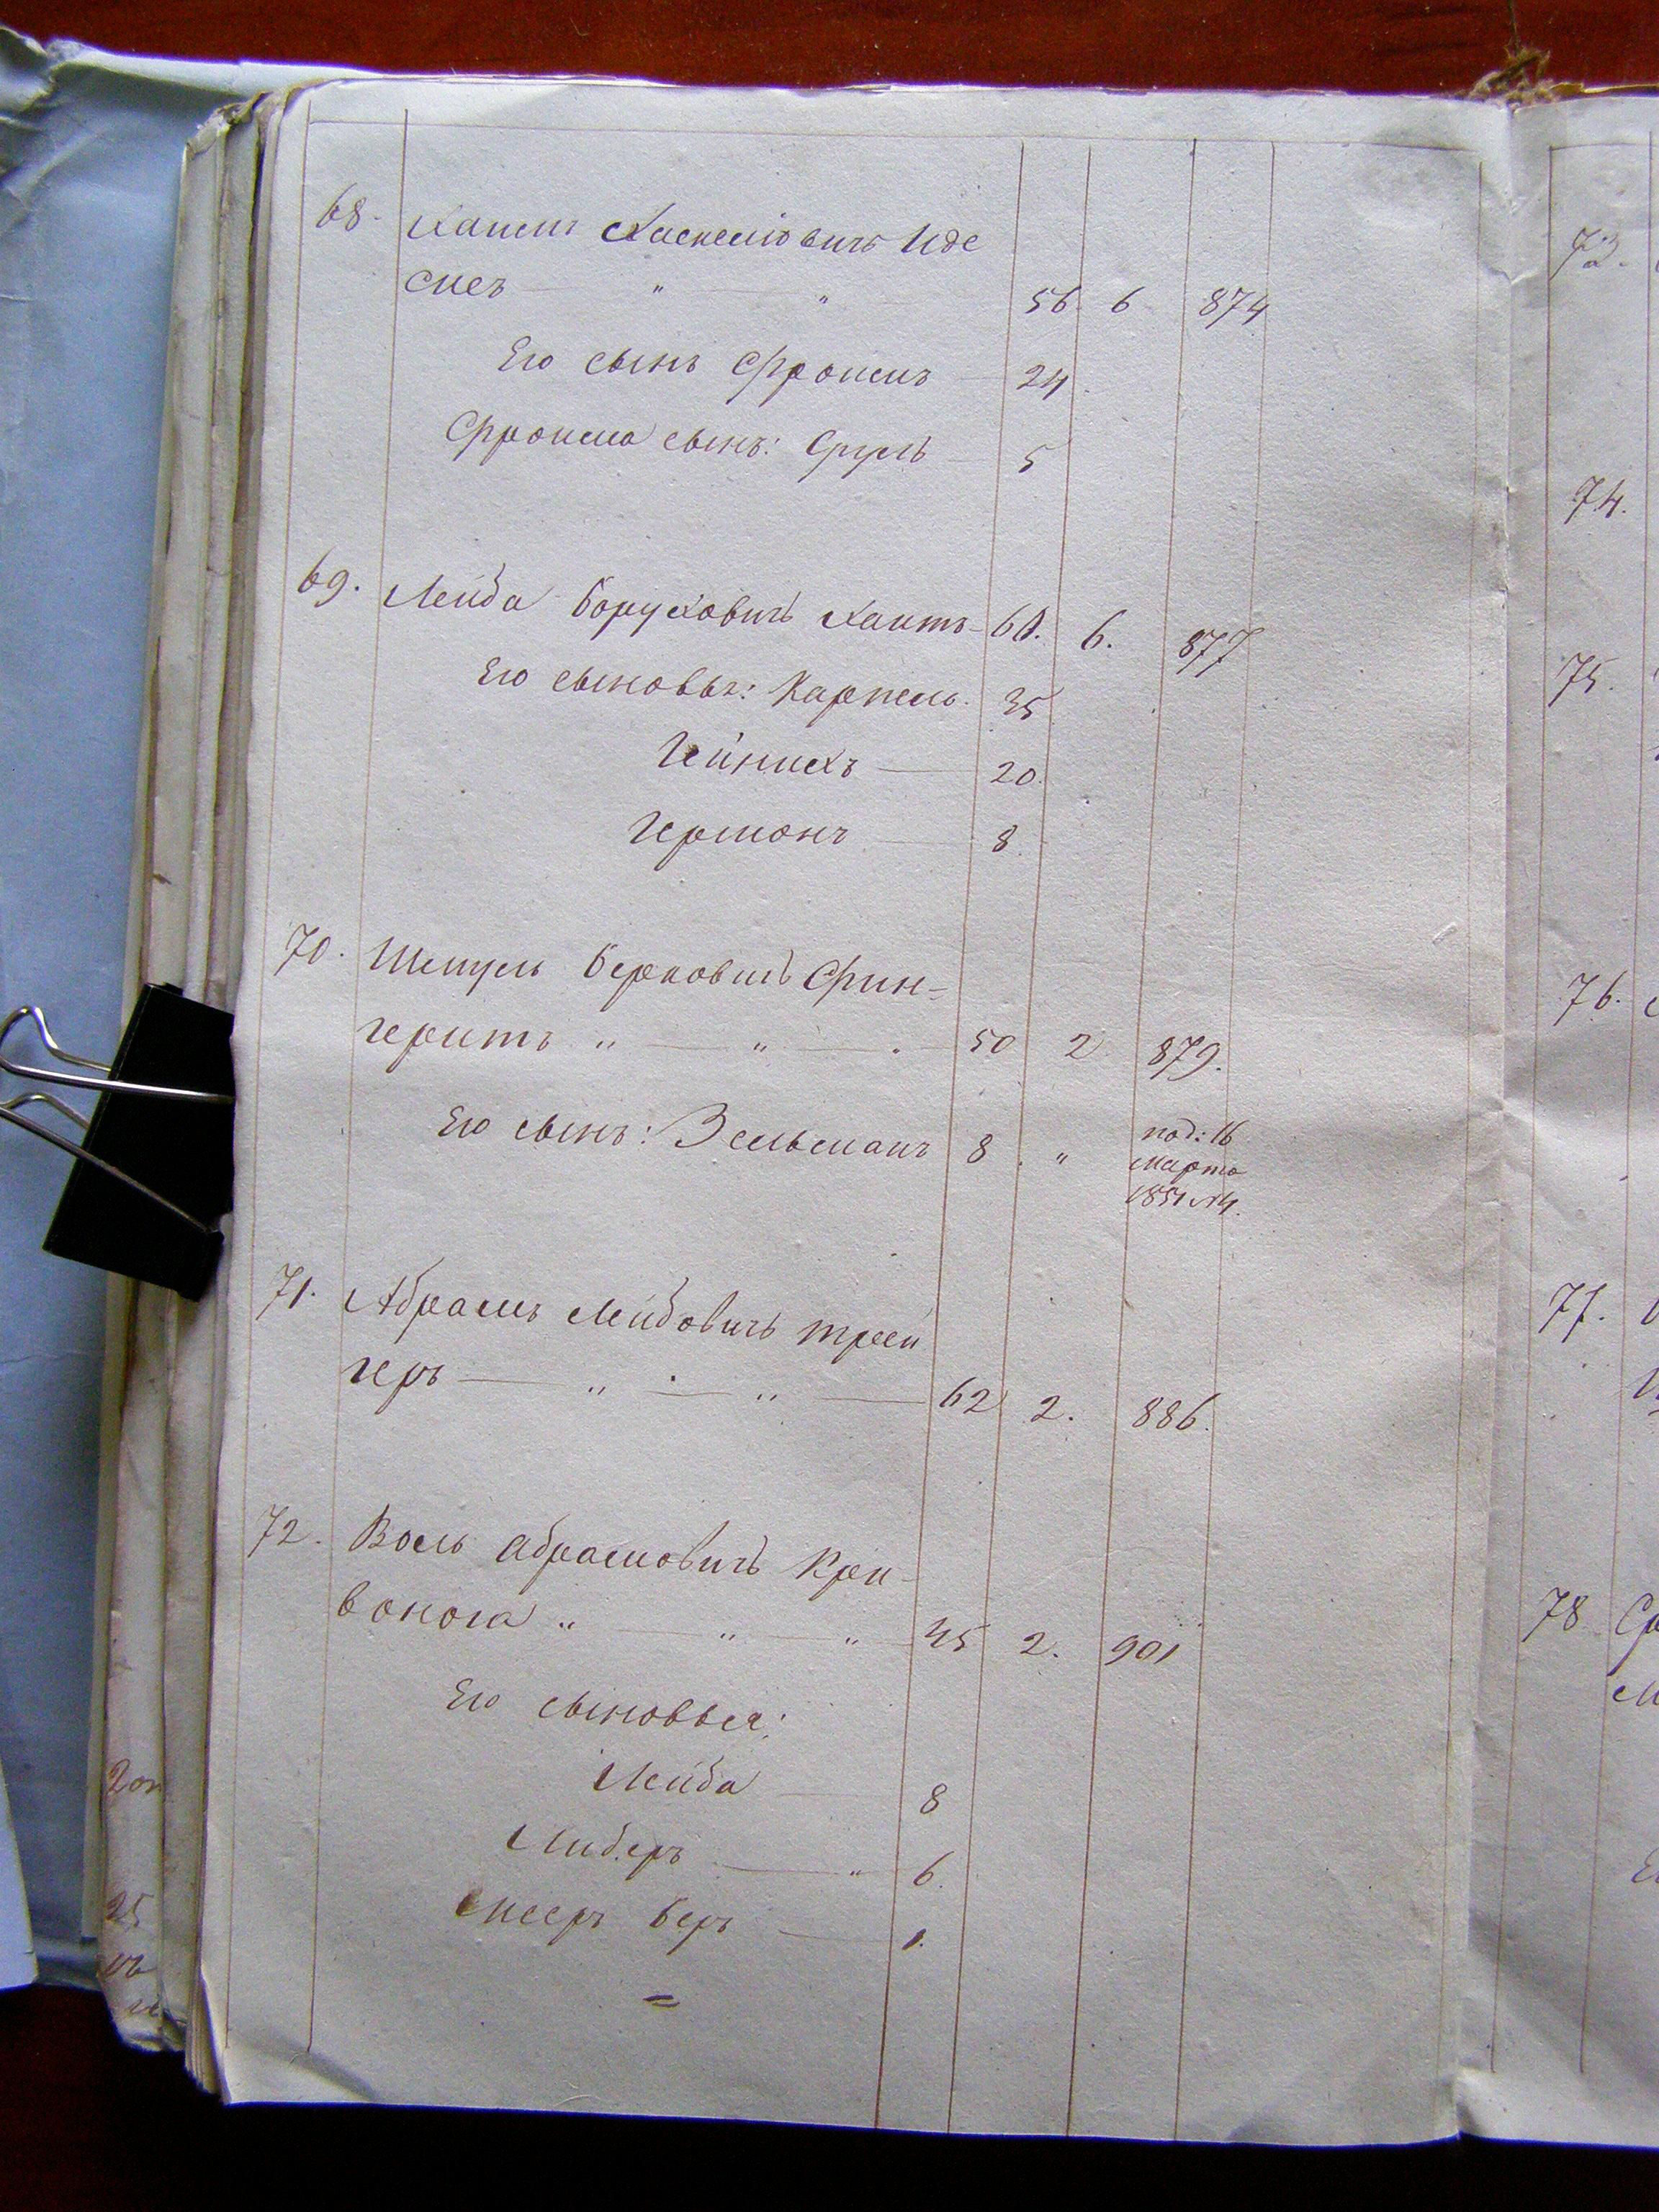 68. Хаимъ Хаскелiовичъ Иде
смеъ — " — " — 56. 6 874
Его сынъ Фроимъ — 24.
Фроима сынъ: Сруль — 5
69. Лейба Боруховичъ Хаитъ — 60. 6. 877
Его сыновья: Карпель. 35
Гейнихъ — 20.
Гершонъ — 8.
70. Шмуль Берковичъ Фин-
геритъ " — " — . 50 2 879.
Его сынъ: Зельманъ 8 . " под: 16
Марта
1851 №4.
71. Абрамъ Лейбовичъ Трей
геръ — " — " — 62 2. 886.
72. Воль Абрамовичъ Кри-
вонога " — " — " 45 2. 901
Его сыновья:
Лейба — 8
Либеръ — " 6.
Исеръ Беръ — 1.
=
73.
74.
75.
76.
77.
78 Ср